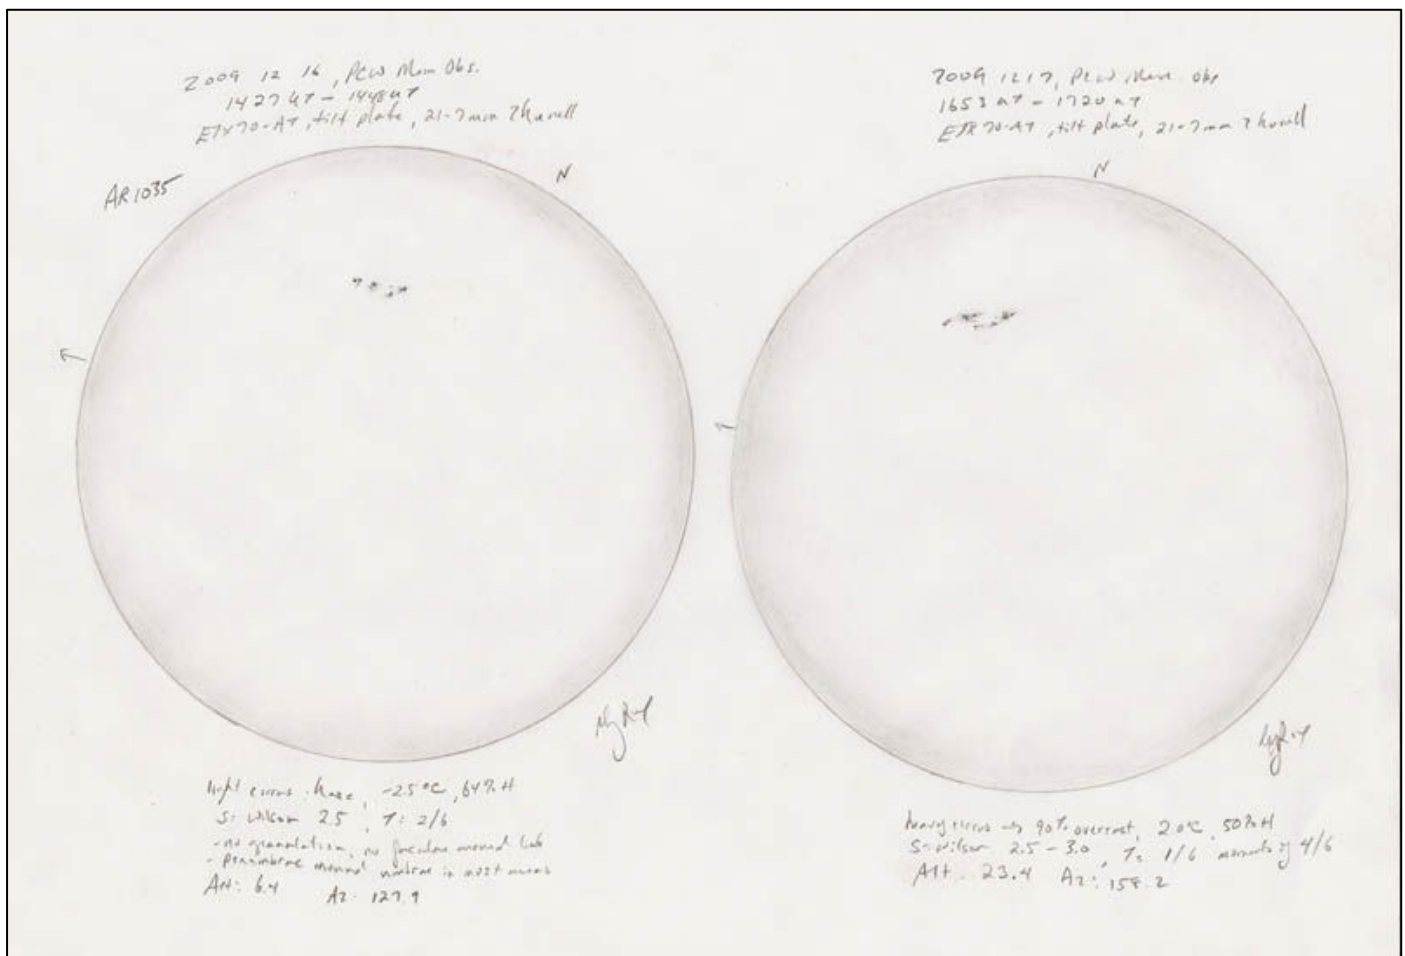 2009 12 16, PCW Mem Obs.
1427 UT - 1448 UT
ETX70-AT, tilt plate, 21-7mm Zhumell
AR1035
N
light cirrus haze, -2.5°C, 64% H
S: Wilson 2.5, T: 2/6
- no granulation, no faculae around limb
- penumbrae around umbrae in most areas
Alt: 6.4 Az: 127.9
2009 12 17, PCW Mem. Obs
1653 UT - 1720 UT
ETX 70-AT, tilt plate, 21-7mm Zhumell
N
heavy cirrus 90% overcast, 2.0°C, 50% H
S: Wilson 2.5 - 3.0, T: 1/6 moments of 4/6
Alt: 23.4 Az: 158.2